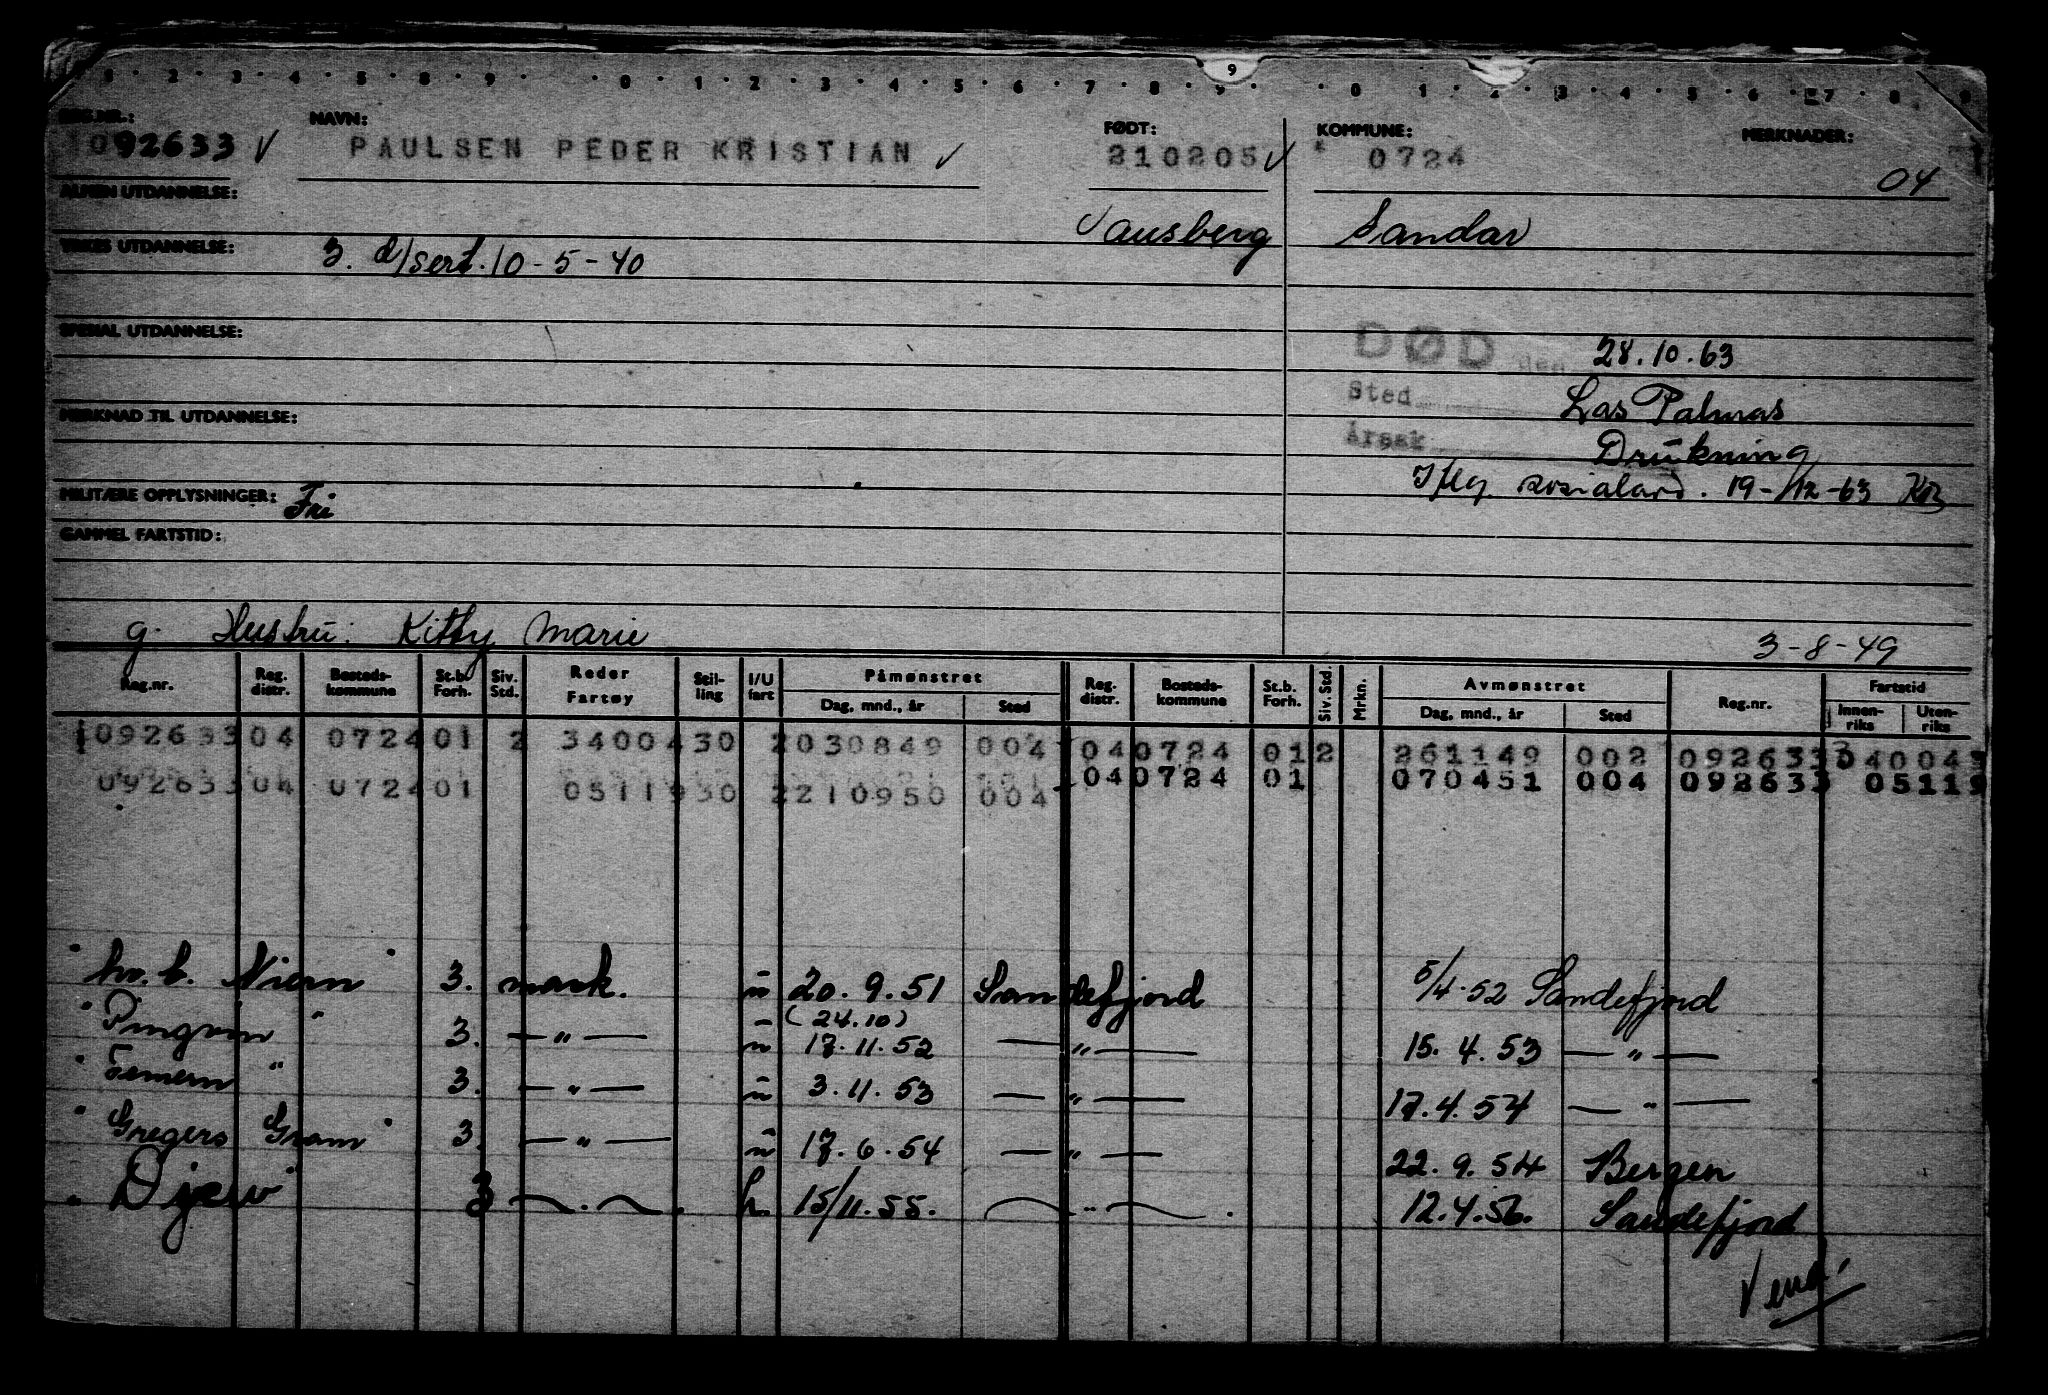 1 · 2 · 3 · 4 · 5 · 8 · 9 · · 0 · 1 · 2 · 3 · 4 · 5 · 6 · 7 · 8 · 9 · · 0 · 1 · 2 · 3 · 4 · 5 · 6 · 7 · 8 · 9
9
REG.NR.: NAVN: FØDT: KOMMUNE: MERKNADER:
1092633 √ PAULSEN PEDER KRISTIAN √ 210205 √ * 0724
04
ALMEN UTDANNELSE:
Sandar
YRKES UTDANNELSE: 3. d/sert. 10-5-40
SPESIAL UTDANNELSE:
DØD den 28.10.63
Sted Las Palmas
MERKNAD TIL UTDANNELSE:
Årsak Drukning
19-/12-63
MILITÆRE OPPLYSNINGER: Fri
GAMMEL FARTSTID:
g. Hustru: Kitty Marie 3-8-49
Reg.nr. Reg. distr. Bosteds-kommune St.b. Forh. Siv. Std. Reder Fartøy Stil-ling I/U fart Påmønstret Dag, mnd., år Sted Reg. distr. Bosteds-kommune St.b. Forh. Siv. Std. Mrkn. Avmønstret Dag, mnd., år Sted Reg.nr. Fartstid Innen-riks Uten-riks
1092633 04 0724 01 2 34004 30 2 030849 004 04 0724 01 2 261149 002 092633 040043
092633 04 0724 01 05119 30 2 210950 004 04 0724 01 070451 004 092633 05119
3. mask. u 20.9.51 Sandefjord 5/4.52 Sandefjord
(24.10)
" Pingvin " 3. — " — u 17.11.52 — " — 15.4.53 — " —
3. — " — u 3.11.53 — " — 17.4.54 — " —
" Gregers Gram " 3. — " — u 17.6.54 — " — 22.9.54 Bergen
" Djerv " 3 — " — h. 15/11.55. — " — 12.4.56. Sandefjord
Vend!